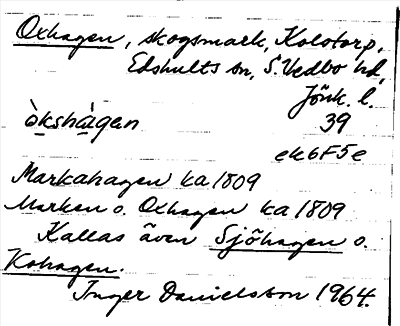 Oxhagen, skogsmark, Kolotorp,
Edshults sn, S. Vedbo hd,
Jönk. l.
òkshàgen 39
ek6F5e
Markahagen ka 1809
Marken o. Oxhagen ka 1809
Kallas även Sjöhagen o.
Kohagen.
Inger Danielsson 1964.